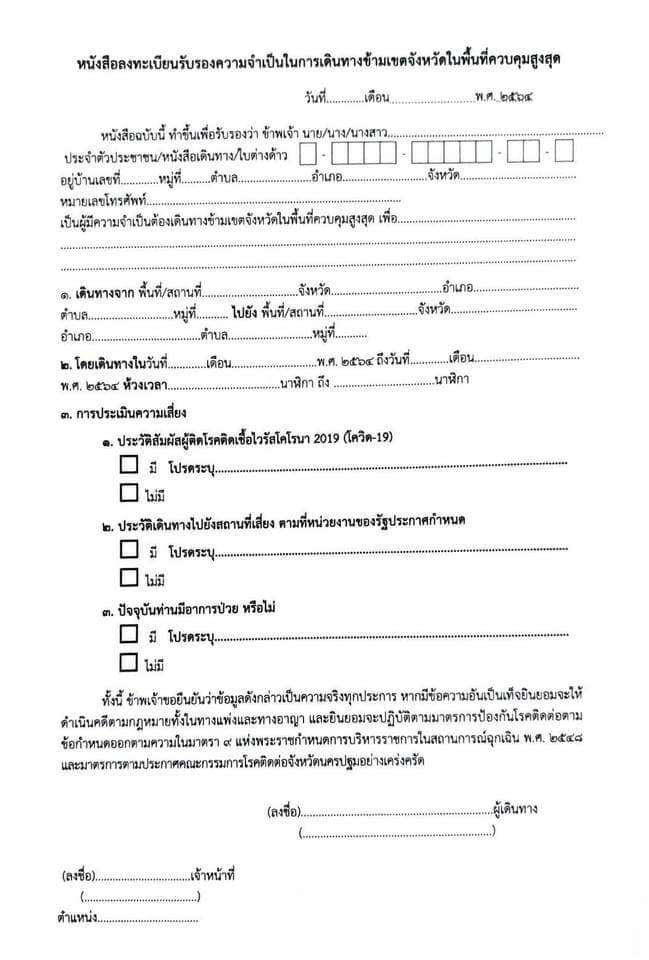 หนังสือลงทะเบียนรับรองความจำเป็นในการเดินทางข้ามเขตจังหวัดในพื้นที่ควบคุมสูงสุด
วันที่.............เดือน..............................พ.ศ. ๒๕๖๔
หนังสือฉบับนี้ ทำขึ้นเพื่อรับรองว่า ข้าพเจ้า นาย/นาง/นางสาว...........................................................................
ประจำตัวประชาชน/หนังสือเดินทาง/ใบต่างด้าว ☐ - ☐☐☐☐ - ☐☐☐☐☐ - ☐☐ - ☐
อยู่บ้านเลขที่.............หมู่ที่..........ตำบล.........................อำเภอ.............................จังหวัด........................................
หมายเลขโทรศัพท์.................................................................
เป็นผู้มีความจำเป็นต้องเดินทางข้ามเขตจังหวัดในพื้นที่ควบคุมสูงสุด เพื่อ..............................................................
....................................................................................................................................................................
....................................................................................................................................................................
๑. เดินทางจาก พื้นที่/สถานที่.................................จังหวัด.......................................อำเภอ.....................................
ตำบล.............................หมู่ที่........... ไปยัง พื้นที่/สถานที่................................จังหวัด............................................
อำเภอ.....................................ตำบล.............................หมู่ที่...........
๒. โดยเดินทางในวันที่.............เดือน.............................พ.ศ. ๒๕๖๔ ถึงวันที่.............เดือน....................................
พ.ศ. ๒๕๖๔ ห้วงเวลา.......................................นาฬิกา ถึง ...................................นาฬิกา
๓. การประเมินความเสี่ยง
๑. ประวัติสัมผัสผู้ติดโรคติดเชื้อไวรัสโคโรนา 2019 (โควิด-19)
☐ มี โปรดระบุ.........................................................................................................................
☐ ไม่มี
๒. ประวัติเดินทางไปยังสถานที่เสี่ยง ตามที่หน่วยงานของรัฐประกาศกำหนด
☐ มี โปรดระบุ.........................................................................................................................
☐ ไม่มี
๓. ปัจจุบันท่านมีอาการป่วย หรือไม่
☐ มี โปรดระบุ.........................................................................................................................
☐ ไม่มี
ทั้งนี้ ข้าพเจ้าขอยืนยันว่าข้อมูลดังกล่าวเป็นความจริงทุกประการ หากมีข้อความอันเป็นเท็จยินยอมจะให้
ดำเนินคดีตามกฎหมายทั้งในทางแพ่งและทางอาญา และยินยอมจะปฏิบัติตามมาตรการป้องกันโรคติดต่อตาม
ข้อกำหนดออกตามความในมาตรา ๙ แห่งพระราชกำหนดการบริหารราชการในสถานการณ์ฉุกเฉิน พ.ศ. ๒๕๔๘
และมาตรการตามประกาศคณะกรรมการโรคติดต่อจังหวัดนครปฐมอย่างเคร่งครัด
(ลงชื่อ)..................................................................ผู้เดินทาง
(.................................................................)
(ลงชื่อ).................................เจ้าหน้าที่
(.......................................)
ตำแหน่ง...................................